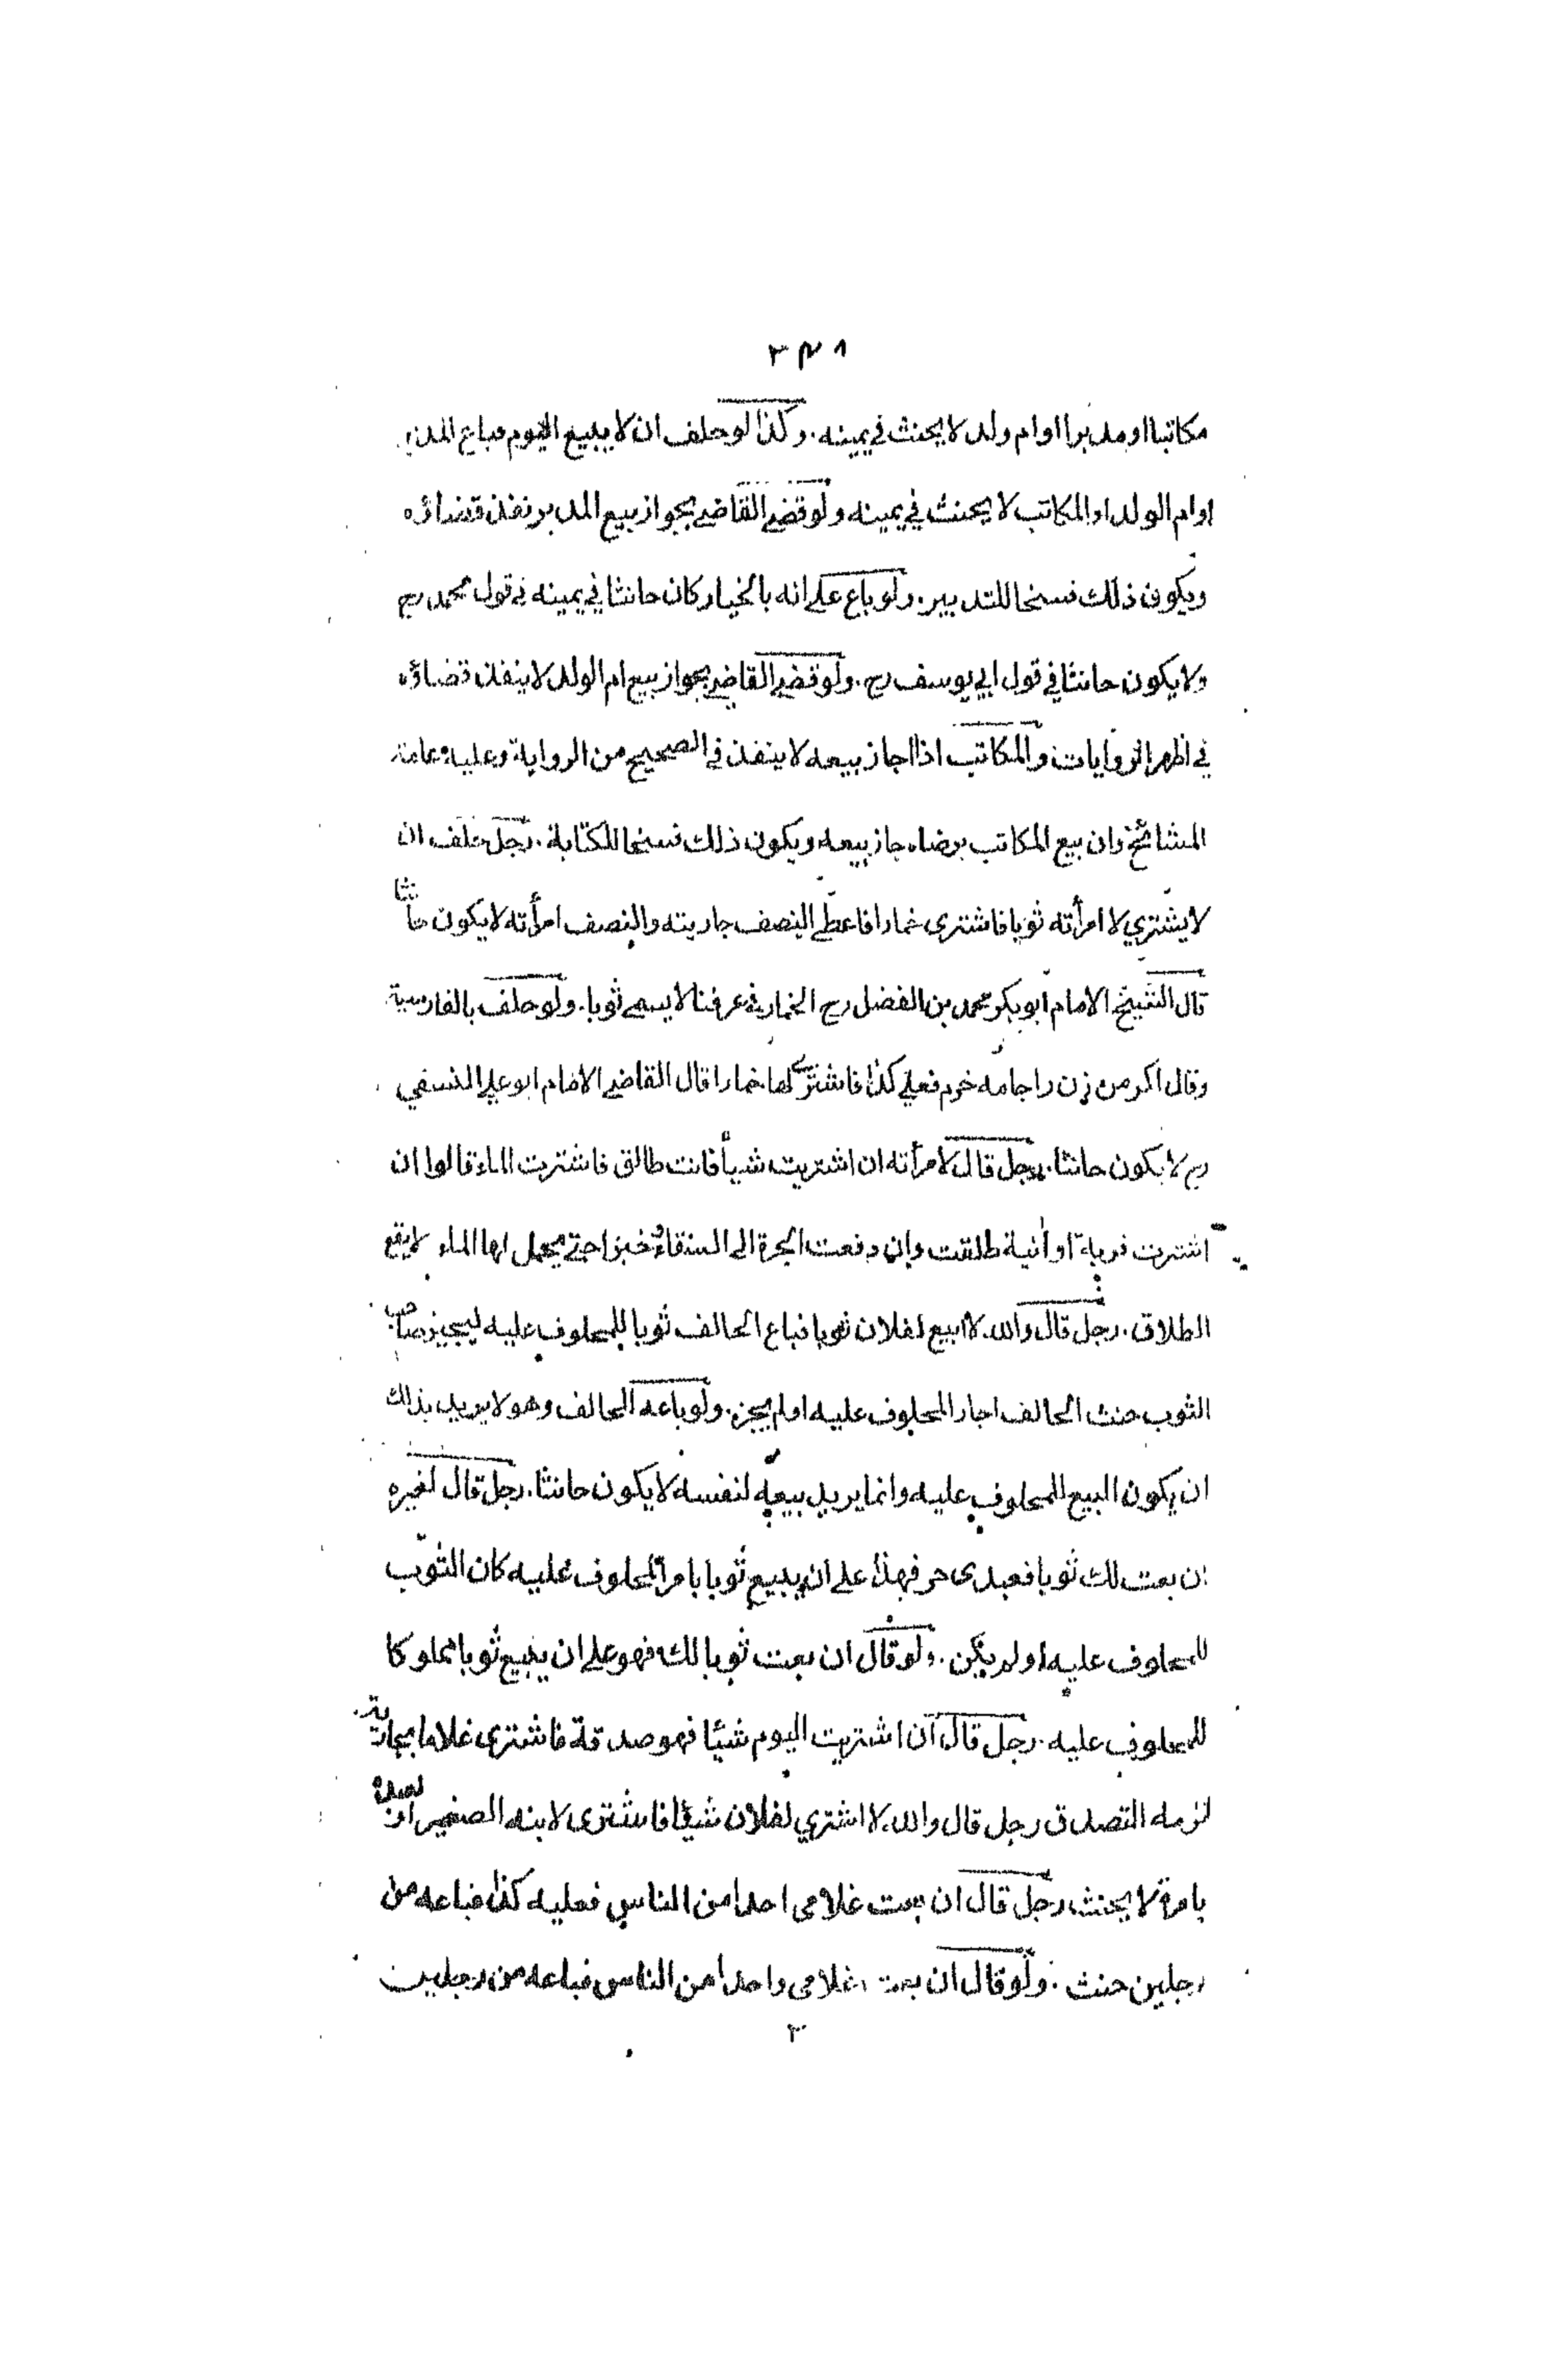 ٣٤٨
مكاتبا او مدبرا او ام ولد لا يحنث في يمينه. وكذا لو حلف ان لا يبيع اليوم فباع المدبر
او ام الولد او المكاتب لا يحنث في يمينه ولو قضى القاضي بجواز بيع المدبر نفذ قضاؤه
ويكون ذلك فسخا للتدبير. ولو باع على انه بالخيار كان حانثا في يمينه في قول محمد رح
ولا يكون حانثا في قول ابي يوسف رح. ولو قضى القاضي بجواز بيع ام الولد لا ينفذ قضاؤه
في اظهر الروايات والمكاتب اذا اجاز بيعه لا ينفذ في الصحيح من الرواية وعليه عامة
المشائخ وان بيع المكاتب برضاه جاز بيعه ويكون ذلك فسخا للكتابة. رجل حلف ان
لا يشتري لامرأته ثوبا فاشترى خمارا فاعطى النصف جاريته والنصف امرأته لا يكون حانثا
قال الشيخ الامام ابو بكر محمد بن الفضل رح الخمار في عرفنا لا يسمى ثوبا. ولو حلف بالفارسية
وقال اكر من زن را جامه خرم فعلي كذا فاشترى لها خمارا قال القاضي الامام ابو علي النسفي
رح لا يكون حانثا. رجل قال لامرأته ان اشتريت شيأ فانت طالق فاشترت الماء قالوا ان
اشترت قربة او آنية طلقت وان دفعت الجرة الى السقاء خبزا حتى يحمل لها الماء لا يقع
الطلاق. رجل قال والله لا ابيع لفلان ثوبا فباع الحالف ثوبا للمحلوف عليه ليجيز صاحب
الثوب حنث الحالف اجاز المحلوف عليه او لم يجز. ولو باعه الحالف وهو لا يريد بذلك
ان يكون البيع للمحلوف عليه وانما يريد بيعه لنفسه لا يكون حانثا. رجل قال لغيره
ان بعت لك ثوبا فعبدى حر فهذا على ان يبيع ثوبا بامر المحلوف عليه كان الثوب
للمحلوف عليه او لم يكن. ولو قال ان بعت ثوبا لك فهو على ان يبيع ثوبا مملوكا
للمحلوف عليه. رجل قال ان اشتريت اليوم شيئا فهو صدقة فاشترى غلاما بجارية
لزمه التصدق رجل قال والله لا اشتري لفلان شيئا فاشترى لابنه الصغير او لعبده
بامره لا يحنث رجل قال ان بعت غلامى احدا من الناس فعليه كذا فباعه من
رجلين حنث. ولو قال ان بعت غلامى واحدا من الناس فباعه من رجلين
٣